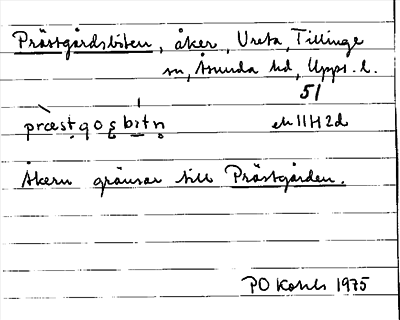 Prästgårdsbiten, åker, Ureta, Tillinge
sn, Åsunda hd, Upps. l.
51
præstgogbitn ek 11H2d
Åkern gränsar till Prästgården.
PO Kohls 1975